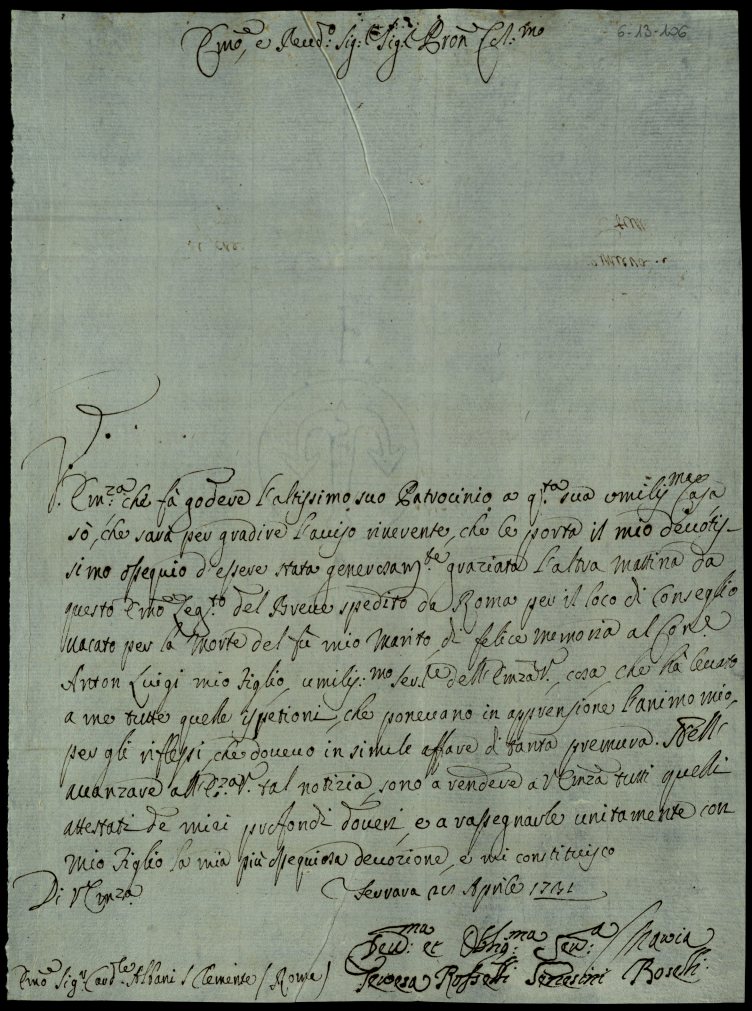 Emo, e Reud:o Sig:re Sig:re Pron Col:mo
6-13-106
V. Emza che fà godere l'altissimo suo Patrocinio a q:ta sua umiliss:ma Casa
sò, che sarà per gradire l'auiso riuerente, che le porta il mio deuotis-
simo ossequio d'essere stata generosam:te graziata l'altra mattina da
questo Emo Leg:to del Breue spedito da Roma per il loco di Conseglio
uacato per la Morte del fù mio Marito di felice memoria al Con:e
Anton Luigi mio Figlio, umiliss:mo Ser:re dell'Emza V:, cosa che hà leuato
a me tutte quelle ispetioni, che poneuano in apprensione l'animo mio,
per gli riflessi, che doueuo in simile affare di tanta premura. Nell'
auanzare all'Emza V: tal notizia, sono a rendere a V Emza tutti quelli
attestati de miei profondi doueri, e a rassegnarle unitamente con
mio Figlio la mia più ossequiosa deuozione, e mi constituisco
Di V Emza
Ferrara Aprile 1731
Deu:ma et Oblig:ma Ser:a Maria
Emo Sig:r Card:le Albani S Clemente (Roma)
Teresa Rosselli Roselli